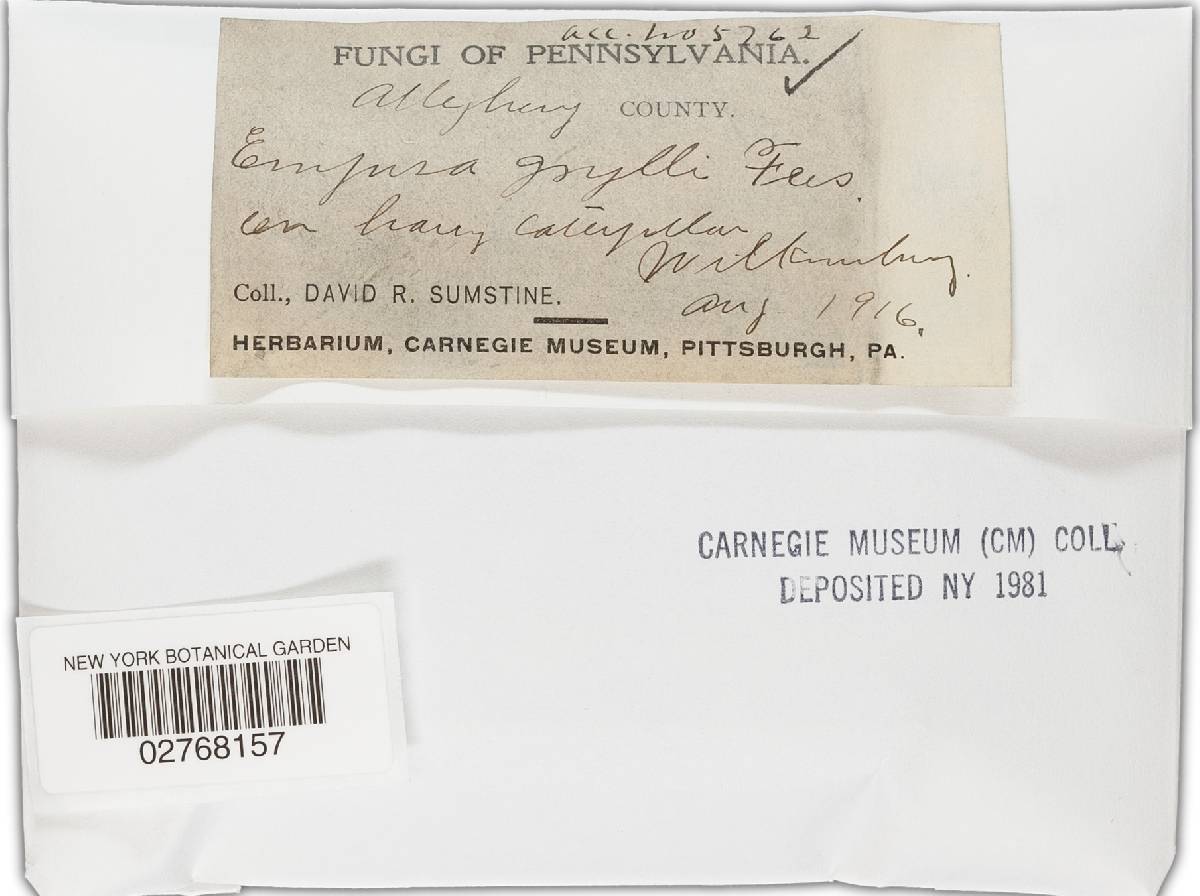 acc. no 5762
FUNGI OF PENNSYLVANIA.
Allegheny COUNTY.
Empusa grylli Fres.
on hairy caterpillar
Wilkinsburg.
Coll., DAVID R. SUMSTINE.
Aug 1916.
HERBARIUM, CARNEGIE MUSEUM, PITTSBURGH, PA.
CARNEGIE MUSEUM (CM) COLL
DEPOSITED NY 1981
NEW YORK BOTANICAL GARDEN
02768157